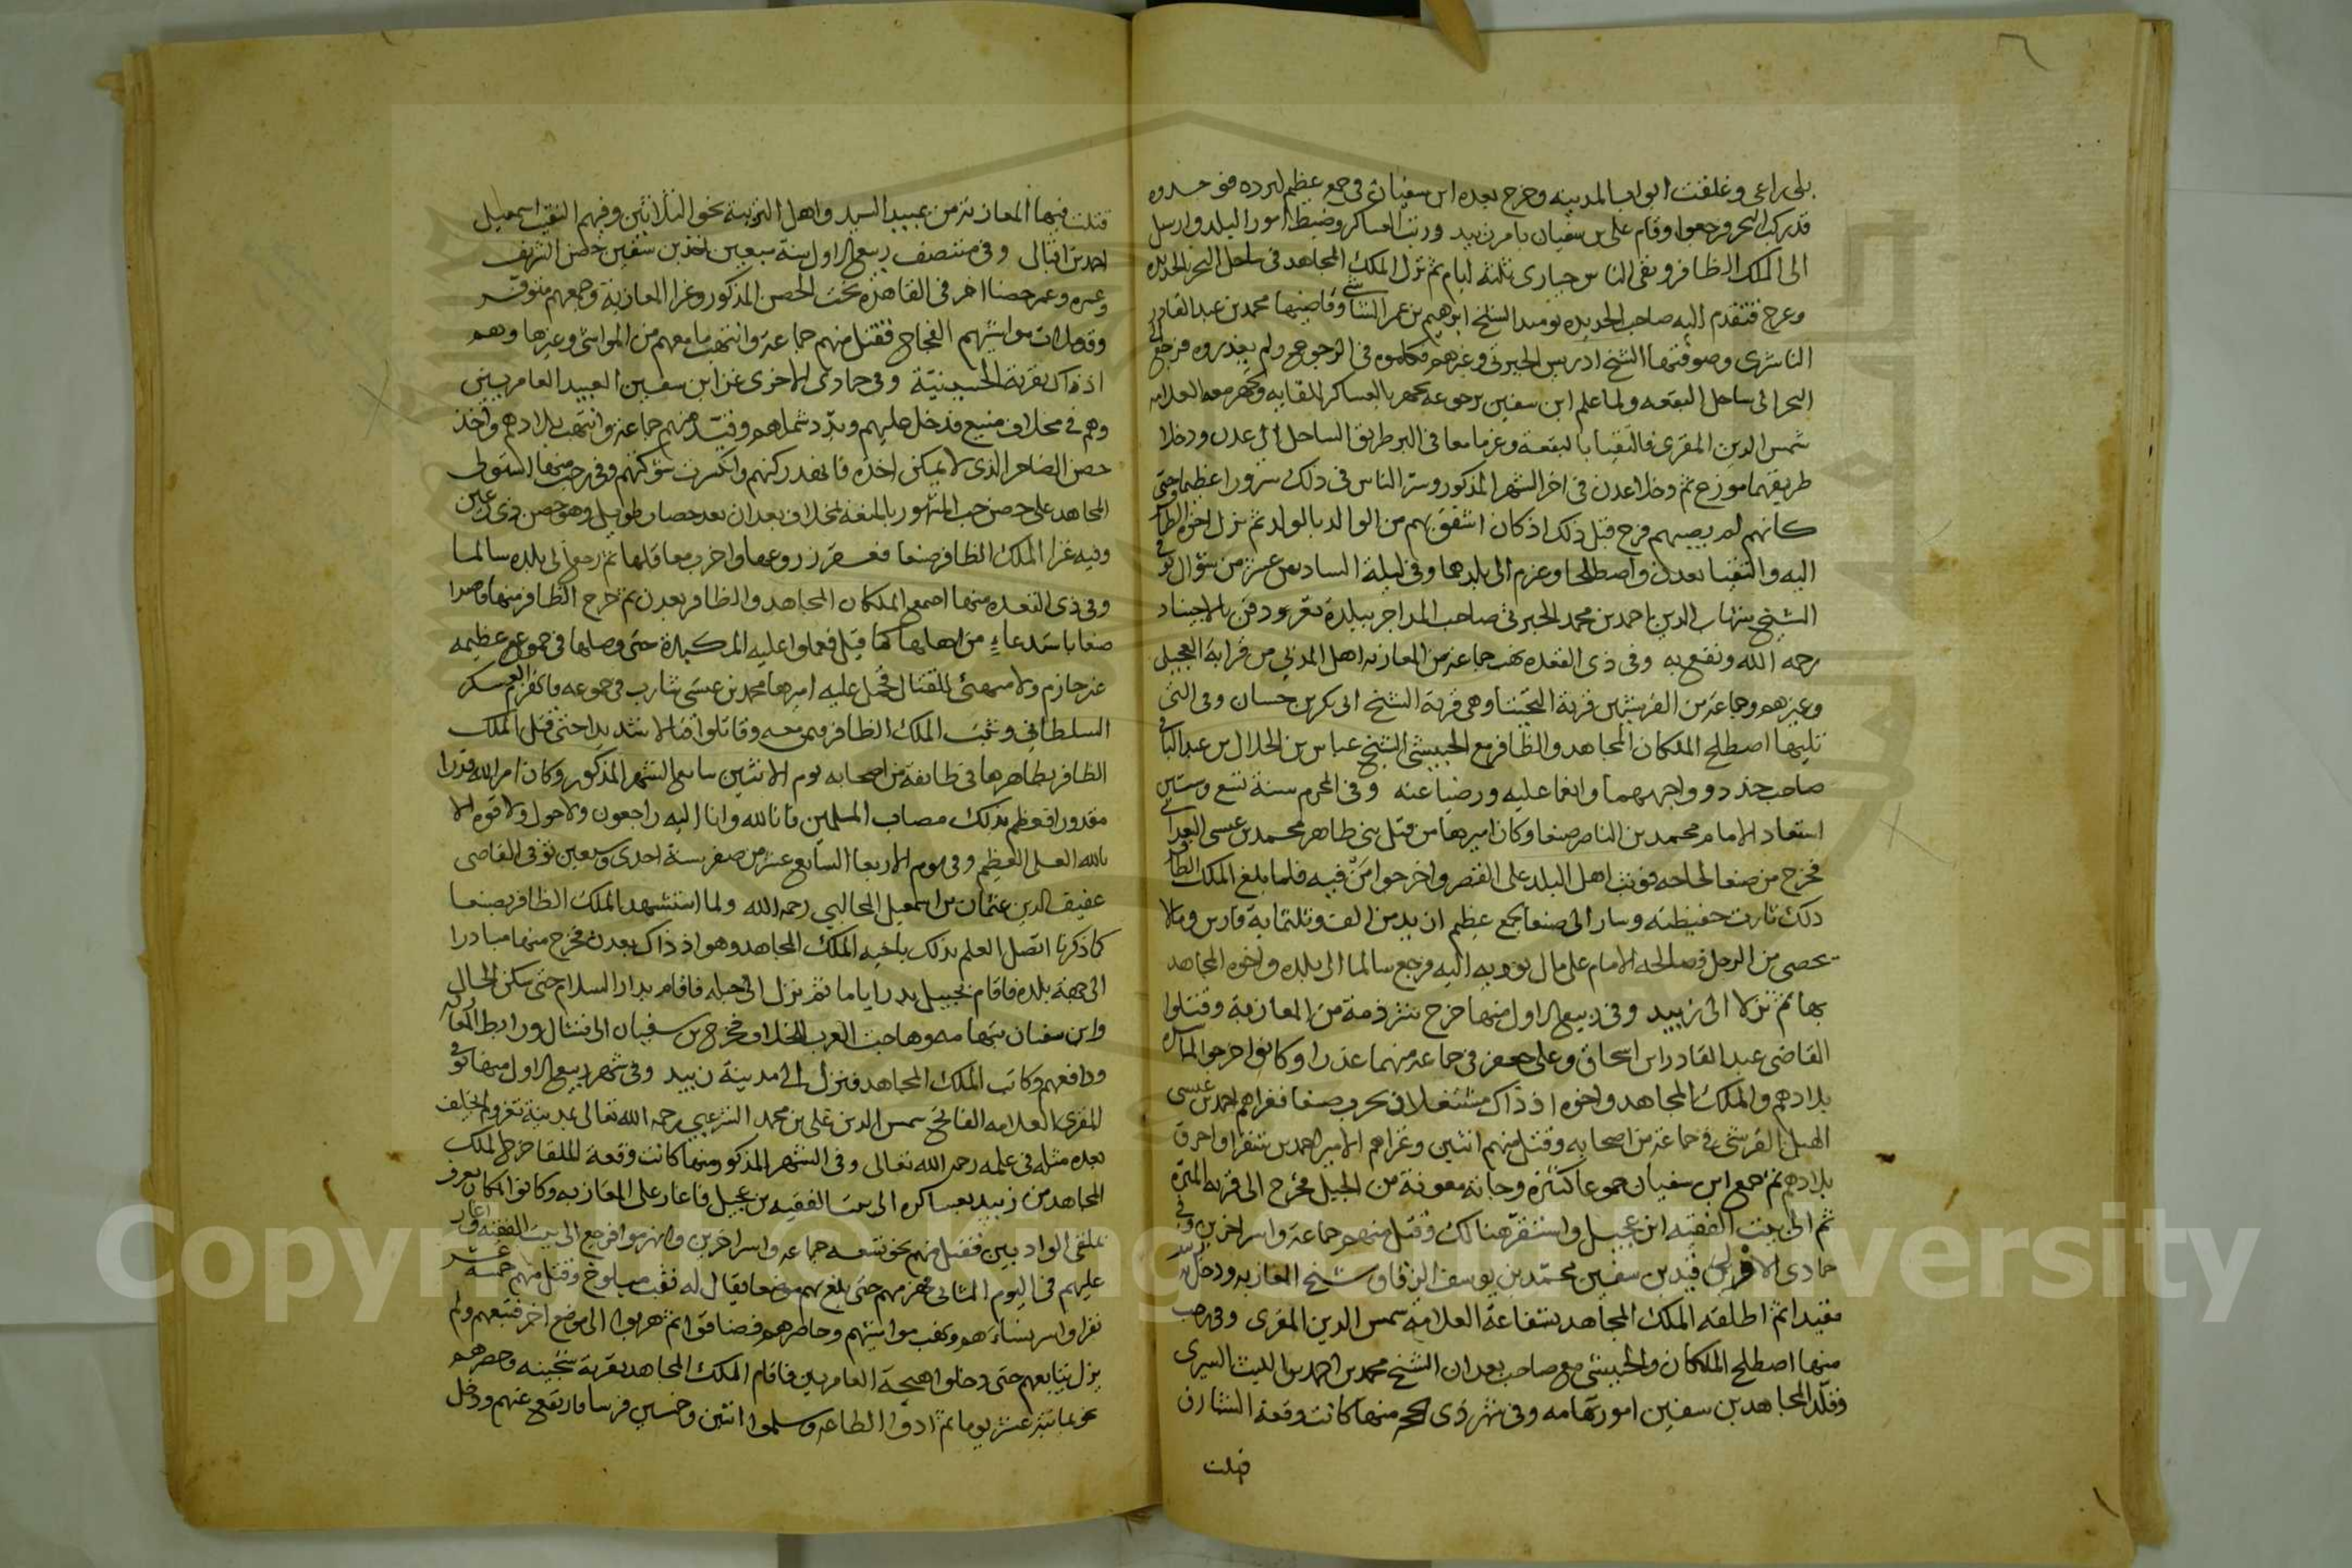 وغلقت ابواب المدينه وخرج بعده ابن سفيان في جمع عظيم ليرده فوجدوه
قد ركب البحر فرجعوا وقام علي بن سفيان بامر زبيد ورتب العساكر وضبط امور البلد وارسل
الى الملك الظافر وبقي الناس حيارى ثلثة ايام ثم نزل الملك المجاهد في ساحل البحر بالحديده
وعرج فتقدم اليه صاحب الحديده يوميد الشيخ ابرهيم بن عمر وقاضيها محمد بن عبد القادر
الناشرى وصوفيها الشيخ ادريس الجبرتي وغيرهم فكلموه في الرجوع ولم يعذروه فرجع في
البحر الى ساحل البقعه ولما علم ابن سفين برجوعه تجهز بالعساكر للقايه وتجهز معه العلامه
شمس الدين المقرى فالتقيا بالبقعة وعزما معا في البر طريق الساحل الى عدن ودخلا
طريقهما موزع ثم دخلا عدن في اخر الشهر المذكور وسر الناس في ذلك سرورا عظيما حتى
كانهم لم يصبهم فرح قبل ذلك اذ كان اشفق بهم من الوالد بالولد ثم نزل اخوه الظافر
اليه والتقيا بعدن واصطلحا وعزم الى بلدهما وفي ليلة السادس عشر من شوال توفي
الشيخ شهاب الدين احمد بن محمد الجبرتي صاحب المداجر ببلدة تعز ودفن بالاجيناد
رحمه الله ونفع به وفي ذي القعده نهب جماعة من المعازبه اهل المدني من قرابة العجيلي
وغيرهم وجماعة من القرشيين قرية التحيتا وهي قرية الشيخ ابى بكر بن حسان وفي التي
تليها اصطلح الملكان المجاهد والظافر مع الحبيشي الشيخ عباس بن الجلال بن عبد الباقي
صاحب خدد وواجههما وانعما عليه ورضيا عنه وفي المحرم سنة تسع وستين
استعاد الامام محمد بن الناصر صنعا وكان اميرها من قبل بني طاهر محمد بن عيسى البعداني
فخرج من صنعا لحاجه فوثب اهل البلد على القصر واخرجوا من فيه فلما بلغ الملك الظافر
ذلك ثارت حفيظته وسار الى صنعا بجمع عظيم ازيد من الف وثلثماية فارس ومالا
يحصى من الرجل فصالحه الامام على مال يؤديه اليه فرجع سالما الى بلده واخوه المجاهد
بها ثم نزلا الى زبيد وفي ربيع الاول منها خرج شرذمة من المعازبة وقتلوا
القاضي عبد القادر ابن اسحاق وعلي جعفر في جماعة منهما غدرا وكانوا اخرجوا
بلادهم والملك المجاهد واخوه اذ ذاك مشتغلان بحرب صنعا فغزاهم احمد بن عيسى
الهبل القرشي في جماعة من اصحابه وقتل منهم اثنين وغزاهم الامير احمد بن سنقر واحرق
بلادهم ثم جمع ابن سفيان جموعا كثيرة وجاته معونة من الجبل فخرج الى قرية
ثم الى بيت الفقيه ابن عجيل واستقر هنالك وقتل منهم جماعة واسر اخرين وفي
جمادى الاولى قيد بن سفين محمد بن يوسف الزقاق شيخ المعازبه ودخل زبيد
مقيدا ثم اطلقه الملك المجاهد بشفاعة العلامه شمس الدين المقرى وفي رجب
منها اصطلح الملكان والحبيشي مع صاحب بعدان الشيخ محمد بن احمد بن الليث السيرى
وقلد المجاهد بن سفين امور تهامه وفي شهر ذي الحجه منها كانت وقعة الشارق
قتلت
قتلت فيها المعازبة من عبيد السيد واهل التريبة نحو الثلاثين وفيهم النقيب اسمعيل
احمد بن اقبالي وفي منتصف ربيع الاول سنة سبعين اخذ بن سفين حصن الشريف
وغيره وعمر حصنا اخر في القاهرة تحت الحصن المذكور وغزا المعازبة وجمعهم متوفر
وقد ملات مواشيهم الفجاج فقتل منهم جماعة وانتهب ما معهم من المواشي وغيرها وهم
اذ ذاك بقرية الحسينية وفي جمادى الاخرى غزا بن سفين العبيد العامريين
وهم في مخلاف منيع فدخل عليهم وبدد شملهم وقتل منهم جماعة وانتهب بلادهم واخذ
حصن الضامر الذي لا يمكن اخذه فانهد ركنهم وانكسرت شوكتهم وفي رجب منها استولى
المجاهد على حصن حب المشهور بالمنعة بمخلاف بعدان بعد حصار طويل وهو حصن ذي رعين
وفيه غزا الملك الظافر صنعا فعقر زروعها واخرب معاقلها ثم رجع الى بلده سالما
وفي ذي القعده منها اجتمع الملكان المجاهد والظافر بعدن ثم خرج الظافر منها قاصدا
صنعا باستدعاء من اهلها كما قيل فعملوا عليه المكيدة حتى وصلها في جموع عظيمه
غير جازم ولا متهيئ للقتال فحمل عليه اميرها محمد بن عيسى شارب في جموعه فانهزم العسكر
السلطاني وثبت الملك الظافر فيمن معه وقاتلوا قتالا شديدا حتى قتل الملك
الظافر بظاهرها في طايفة من اصحابه يوم الاثنين سابع الشهر المذكور وكان امر الله قدرا
مقدورا فعظم بذلك مصاب المسلمين فانا لله وانا اليه راجعون ولا حول ولا قوة الا
بالله العلي العظيم وفي يوم الاربعا السابع عشر من صفر سنة احدى وسبعين توفي القاضي
عفيف الدين عثمان بن اسمعيل المحالبي رحمه الله ولما استشهد الملك الظافر بصنعا
كما ذكرنا اتصل العلم بذلك باخيه الملك المجاهد وهو اذ ذاك بعدن فخرج منها مبادرا
الى جهة بلده فاقام بجبيل بدر اياما ثم نزل الى جبله فاقام بدار السلام حتى سكن الحال
وابن سفيان بتهامه وهاجت العرب بالخلاف فخرج بن سفيان الى فشال ورابط المعازبه
ودافعهم وكاتب الملك المجاهد فنزل الى مدينة زبيد وفي شهر ربيع الاول منها توفي
المقرى العلامه الصالح شمس الدين علي بن محمد الشرعبي رحمه الله تعالى بمدينة تعز ولم يخلف
بعده مثله في علمه رحمه الله تعالى وفي الشهر المذكور منها كانت وقعة الملقا خرج الملك
المجاهد من زبيد بعساكره الى بيت الفقيه بن عجيل فاغار على المعازبه وكانوا بمكان يعرف
بملقى الواديين فقتل منهم نحو تسعه جماعة واسر اخرين وانهزموا فرجع الى بيت الفقيه واغار
عليهم في اليوم الثاني فهزمهم حتى بلغ بهم موضعا يقال له وقتل منهم خمسة عشر
نفرا واسر نساءهم ونهب مواشيهم وحاصرهم فضاقوا ثم هربوا الى موضع اخر فتبعهم ولم
يزل يتابعهم حتى دخلوا العامريين فاقام الملك المجاهد بقرية وحصرهم
نحو ثمانية عشر يوما ثم ادوا الطاعه وسلموا اثنين وخمسين فرسا فارتفع عنهم ودخل
Copyright © King Saud University